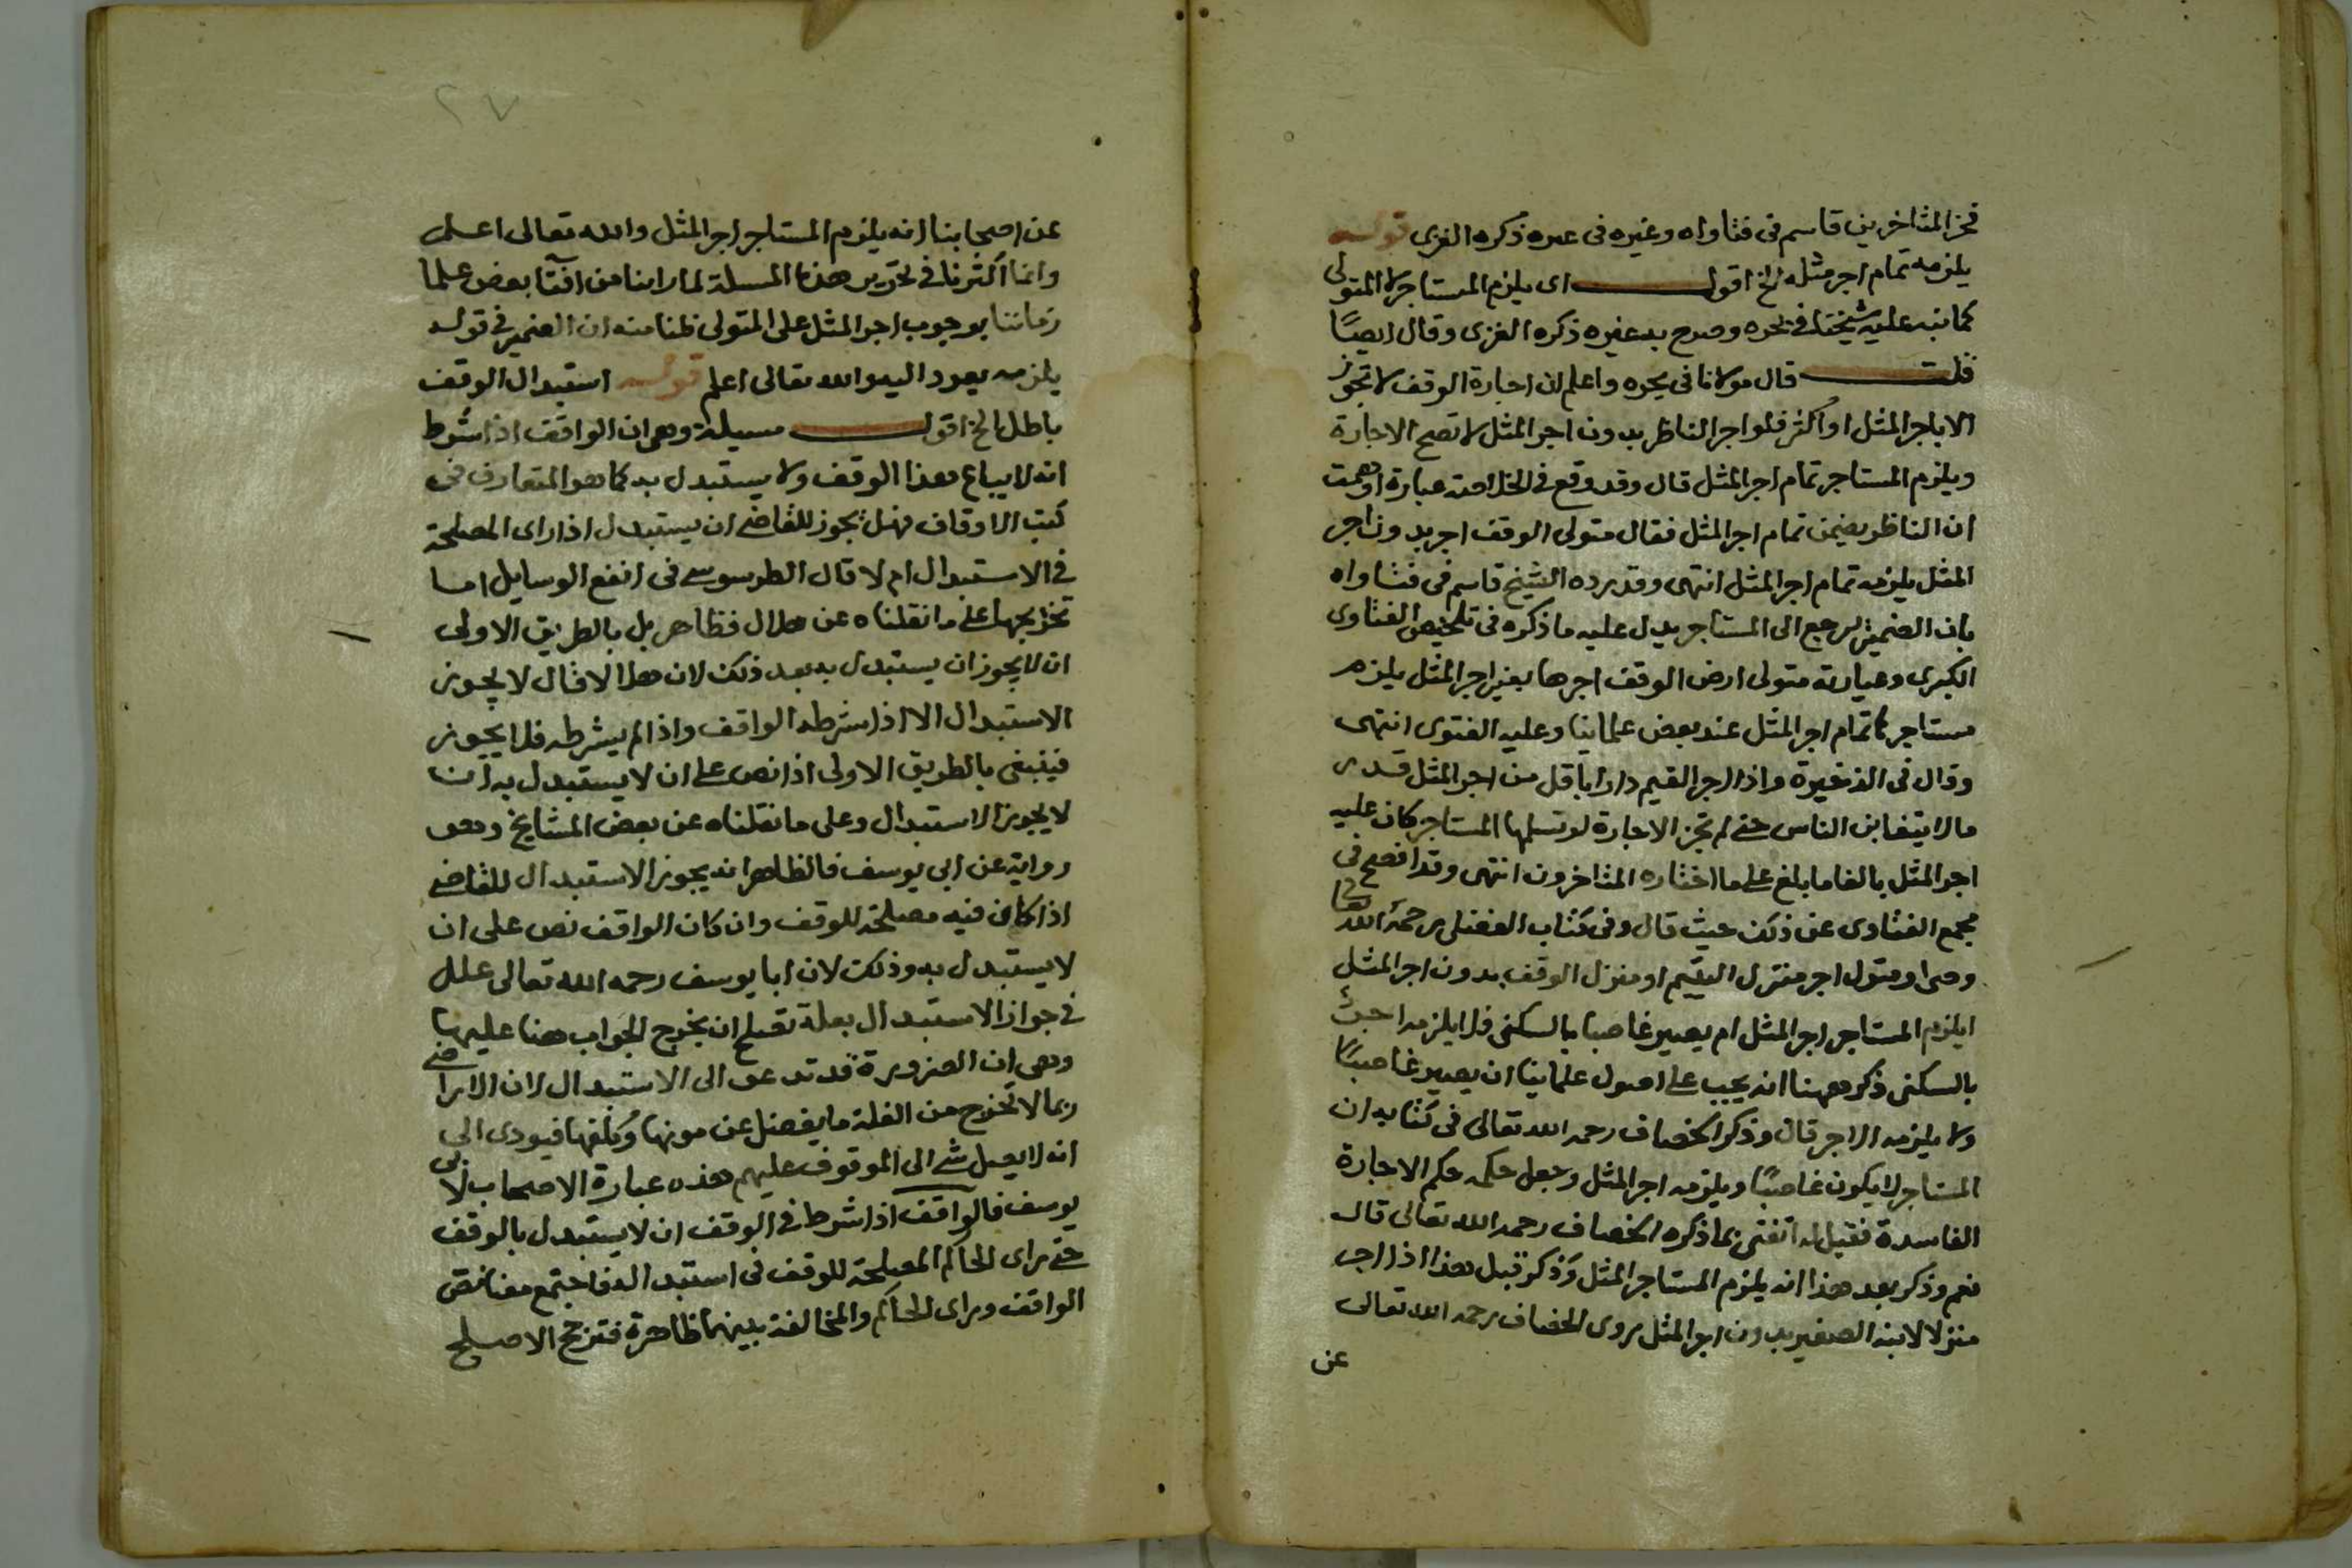 فخر المتاخرين قاسم فى فتاواه وغيره فى غيره ذكره الغزى قوله
يلزمه تمام اجر مثله الخ اقول اى يلزم المستاجر لا المتولى
كما نبه عليه شيخنا فى بحره وصرح به غيره ذكره الغزى وقال ايضًا
قلت قال مولانا فى بحره واعلم ان اجارة الوقف لا تجوز
الا باجر المثل او اكثر فلو اجر الناظر بدون اجر المثل لا تصح الاجارة
ويلزم المستاجر تمام اجر المثل قال وقد وقع فى الخلاصة عبارة اوهمت
ان الناظر يضمن تمام اجر المثل فقال متولى الوقف اجر بدون اجر
المثل يلزمه تمام اجر المثل انتهى وقد رده الشيخ قاسم فى فتاواه
بان الضمير يرجع الى المستاجر يدل عليه ما ذكره فى تلخيص الفتاوى
الكبرى وعبارته متولى ارض الوقف اجرها بغير اجر المثل يلزم
مستاجرها تمام اجر المثل عند بعض علماينا وعليه الفتوى انتهى
وقال فى الذخيرة واذا اجر القيم دارا باقل من اجر المثل قدر
ما لا يتغابن الناس حتى لم تجز الاجارة لو تسلمها المستاجر كان عليه
اجر المثل بالغا ما بلغ على ما اختاره المتاخرون انتهى وقد افصح فى
مجمع الفتاوى عن ذلك حيث قال وفى كتاب الفضلى رحمه الله تعالى
وصى او متولى اجر منزل اليتيم او منزل الوقف بدون اجر المثل
ايلزم المستاجر اجر المثل ام يصير غاصبا بالسكنى فلا يلزمه اجرة
بالسكنى ذكر ههنا انه يجب على اصول علماينا ان يصير غاصبًا
ولا يلزمه الاجر قال وذكر الخصاف رحمه الله تعالى فى كتابه ان
المستاجر لا يكون غاصبًا ويلزمه اجر المثل وجعل حكمه حكم الاجارة
الفاسدة فقيل له اتفتى بما ذكره الخصاف رحمه الله تعالى قال
نعم وذكر بعد هذا انه يلزم المستاجر المثل وذكر قبل هذا اذا اجر
منزلا لابنه الصغير بدون اجر المثل روى الخصاف رحمه الله تعالى
عن
٢٧
عن اصحابنا انه يلزم المستاجر اجر المثل والله تعالى اعلم
وانما اكثرنا فى تحرير هذه المسلة لما راينا من افتا بعض علما
زماننا بوجوب اجر المثل على المتولى ظنا منه ان الضمير فى قوله
يلزمه يعود اليه والله تعالى اعلم قوله استبدال الوقف
باطل الخ اقول مسيلة وهى ان الواقف اذا شرط
انه لا يباع هذا الوقف ولا يستبدل به كما هو المتعارف فى
كتب الاوقاف فهل يجوز للقاضى ان يستبدل اذا راى المصلحة
فى الاستبدال ام لا قال الطرسوسى فى انفع الوسايل اما
تخريجها على ما نقلناه عن هلال فظاهر بل بالطريق الاولى
ان لا يجوز ان يستبدل به بعد ذلك لان هلالا قال لا يجوز
الاستبدال الا اذا شرطه الواقف واذا لم يشرطه فلا يجوز
فينبغى بالطريق الاولى اذا نص على ان لا يستبدل به ان
لا يجوز الاستبدال وعلى ما نقلناه عن بعض المشايخ وهو
رواية عن ابى يوسف فالظاهر انه يجوز الاستبدال للقاضى
اذا كان فيه مصلحة للوقف وان كان الواقف نص على ان
لا يستبدل به وذلك لان ابا يوسف رحمه الله تعالى علل
فى جواز الاستبدال بعلة تصلح ان يخرج الجواب هنا عليها
وهى ان الضرورة قد تدعو الى الاستبدال لان الاراضى
ربما لا تخرج من الغلة ما يفضل عن مونها وكلفها فيودى الى
انه لا يصل شى الى الموقوف عليهم هذه عبارة الاصحاب لابى
يوسف فالواقف اذا شرط فى الوقف ان لا يستبدل بالوقف
حتى راى الحاكم المصلحة للوقف فى استبداله فاجتمع معنا نص
الواقف وراى الحاكم والمخالفة بينهما ظاهرة فترجح الاصلح